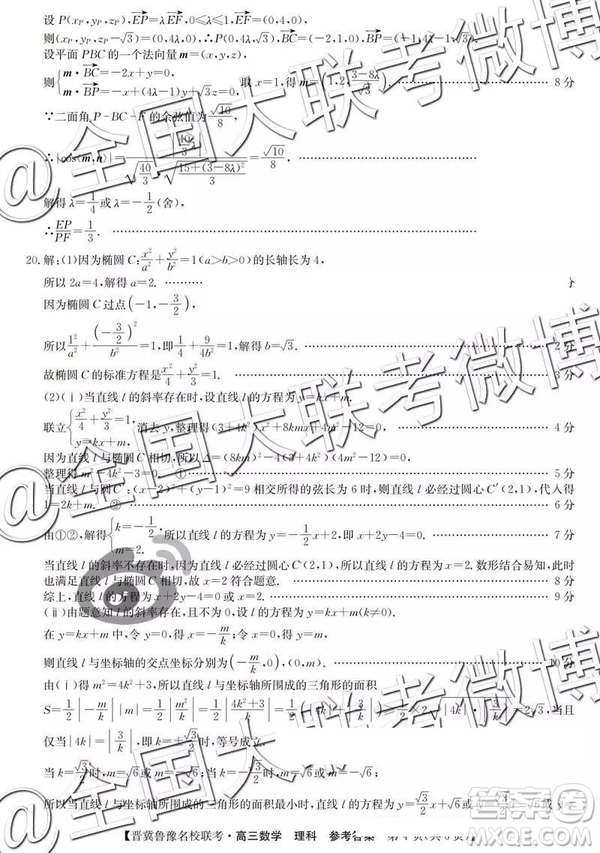 设 P(x_P, y_P, z_P), \overrightarrow{EP}=λ\overrightarrow{EF}, 0≤λ≤1, \overrightarrow{EF}=(0,4,0),
则(x_P, y_P, z_P-√3)=λ(0,4,0), P(0,4λ,√3), \overrightarrow{BC}=(-2,1,0), \overrightarrow{BP}=(-1,4λ-1,√3),
设平面 PBC 的一个法向量 m=(x,y,z),
则 { m·\overrightarrow{BC}=-2x+y=0, m·\overrightarrow{BP}=-x+(4λ-1)y+√3z=0. 取 x=1, 得 m=(1,2,\frac{3-8λ}{√3}) 8分
∵二面角 P-BC-F 的余弦值为 \frac{√10}{8},
∴|cos⟨m,n⟩|= =\frac{√10}{8}
解得 λ=\frac{1}{4} 或 λ=- (舍),
∴\frac{EP}{PF}=\frac{1}{3}.
20. 解:(1)因为椭圆 C:\frac{x²}{a²}+\frac{y²}{b²}=1(a>b>0)的长轴长为 4,
所以 2a=4, 解得 a=2. 分
因为椭圆 C 过点(-1,-\frac{3}{2}),
所以\frac{1²}{a²}+\frac{(-\frac{3}{2})²}{b²}=1, 即\frac{1}{4}+\frac{9}{4b²}=1, 解得 b=√3. 2分
故椭圆 C 的标准方程是\frac{x²}{4}+\frac{y²}{3}=1. 3分
(2)(ⅰ)当直线 l 的斜率存在时,设直线 l 的方程为 y=kx+m.
联立 { \frac{x²}{4}+\frac{y²}{3}=1, y=kx+m, 消去 y, 整理得(3+4k²)x²+8kmx+4m²-12=0, 4分
因为直线 l 与椭圆 C 相切, 所以 Δ=(8km)²-4(3+4k²)(4m²-12)=0,
整理得 m²-4k²-3=0. 5分
当直线 l 与圆 C′:(x-2)²+(y-1)²=9 相交所得的弦长为 6 时,则直线 l 必经过圆心 C′(2,1),代入得
1=2k+m. ② 6分
由①②,解得 { k=-\frac{1}{2}, m=2, 所以直线 l 的方程为 y=-\frac{1}{2}x+2, 即 x+2y-4=0. 7分
当直线 l 的斜率不存在时,直线 l 必经过圆心 C′(2,1),所以直线 l 的方程为 x=2. 经检验,此时
也满足直线 l 与椭圆 C 相切,故 x=2 符合题意. 8分
综上,直线 l 的方程为 x=2 或 x+2y-4=0. 8分
(ⅱ)由题意知 l 的斜率存在,且不为 0, 设 l 的方程为 y=kx+m(k≠0).
在 y=kx+m 中,令 y=0, 得 x=-\frac{m}{k}; 令 x=0, 得 y=m,
则直线 l 与坐标轴的交点坐标分别为(-\frac{m}{k},0),(0,m). 10分
由(ⅰ)得 m²=4k²+3, 则直线 l 与坐标轴所围成的三角形的面积
S=\frac{1}{2}|-\frac{m}{k}||m|=\frac{1}{2}|\frac{m²}{k}|=\frac{1}{2}|\frac{4k²+3}{k}|= =2√3, 当且
仅当|4k|=|\frac{3}{k}|, 即 k=±\frac{√3}{2}时,等号成立.
当 k=\frac{√3}{2}时, m=±√6; 当 k=-\frac{√3}{2}时, m=±√6.
所以当直线 l 与坐标轴所围成的三角形面积最小时,直线 l 的方程为 y=\frac{√3}{2}x+√6或 y=\frac{√3}{2}x-√6或 y=
【晋冀鲁豫名校联考·高三数学 理科 参考答案 第4页(共6页)】
@全国大联考微博
@全国大联考微博
@全国大联考微博
答案圈